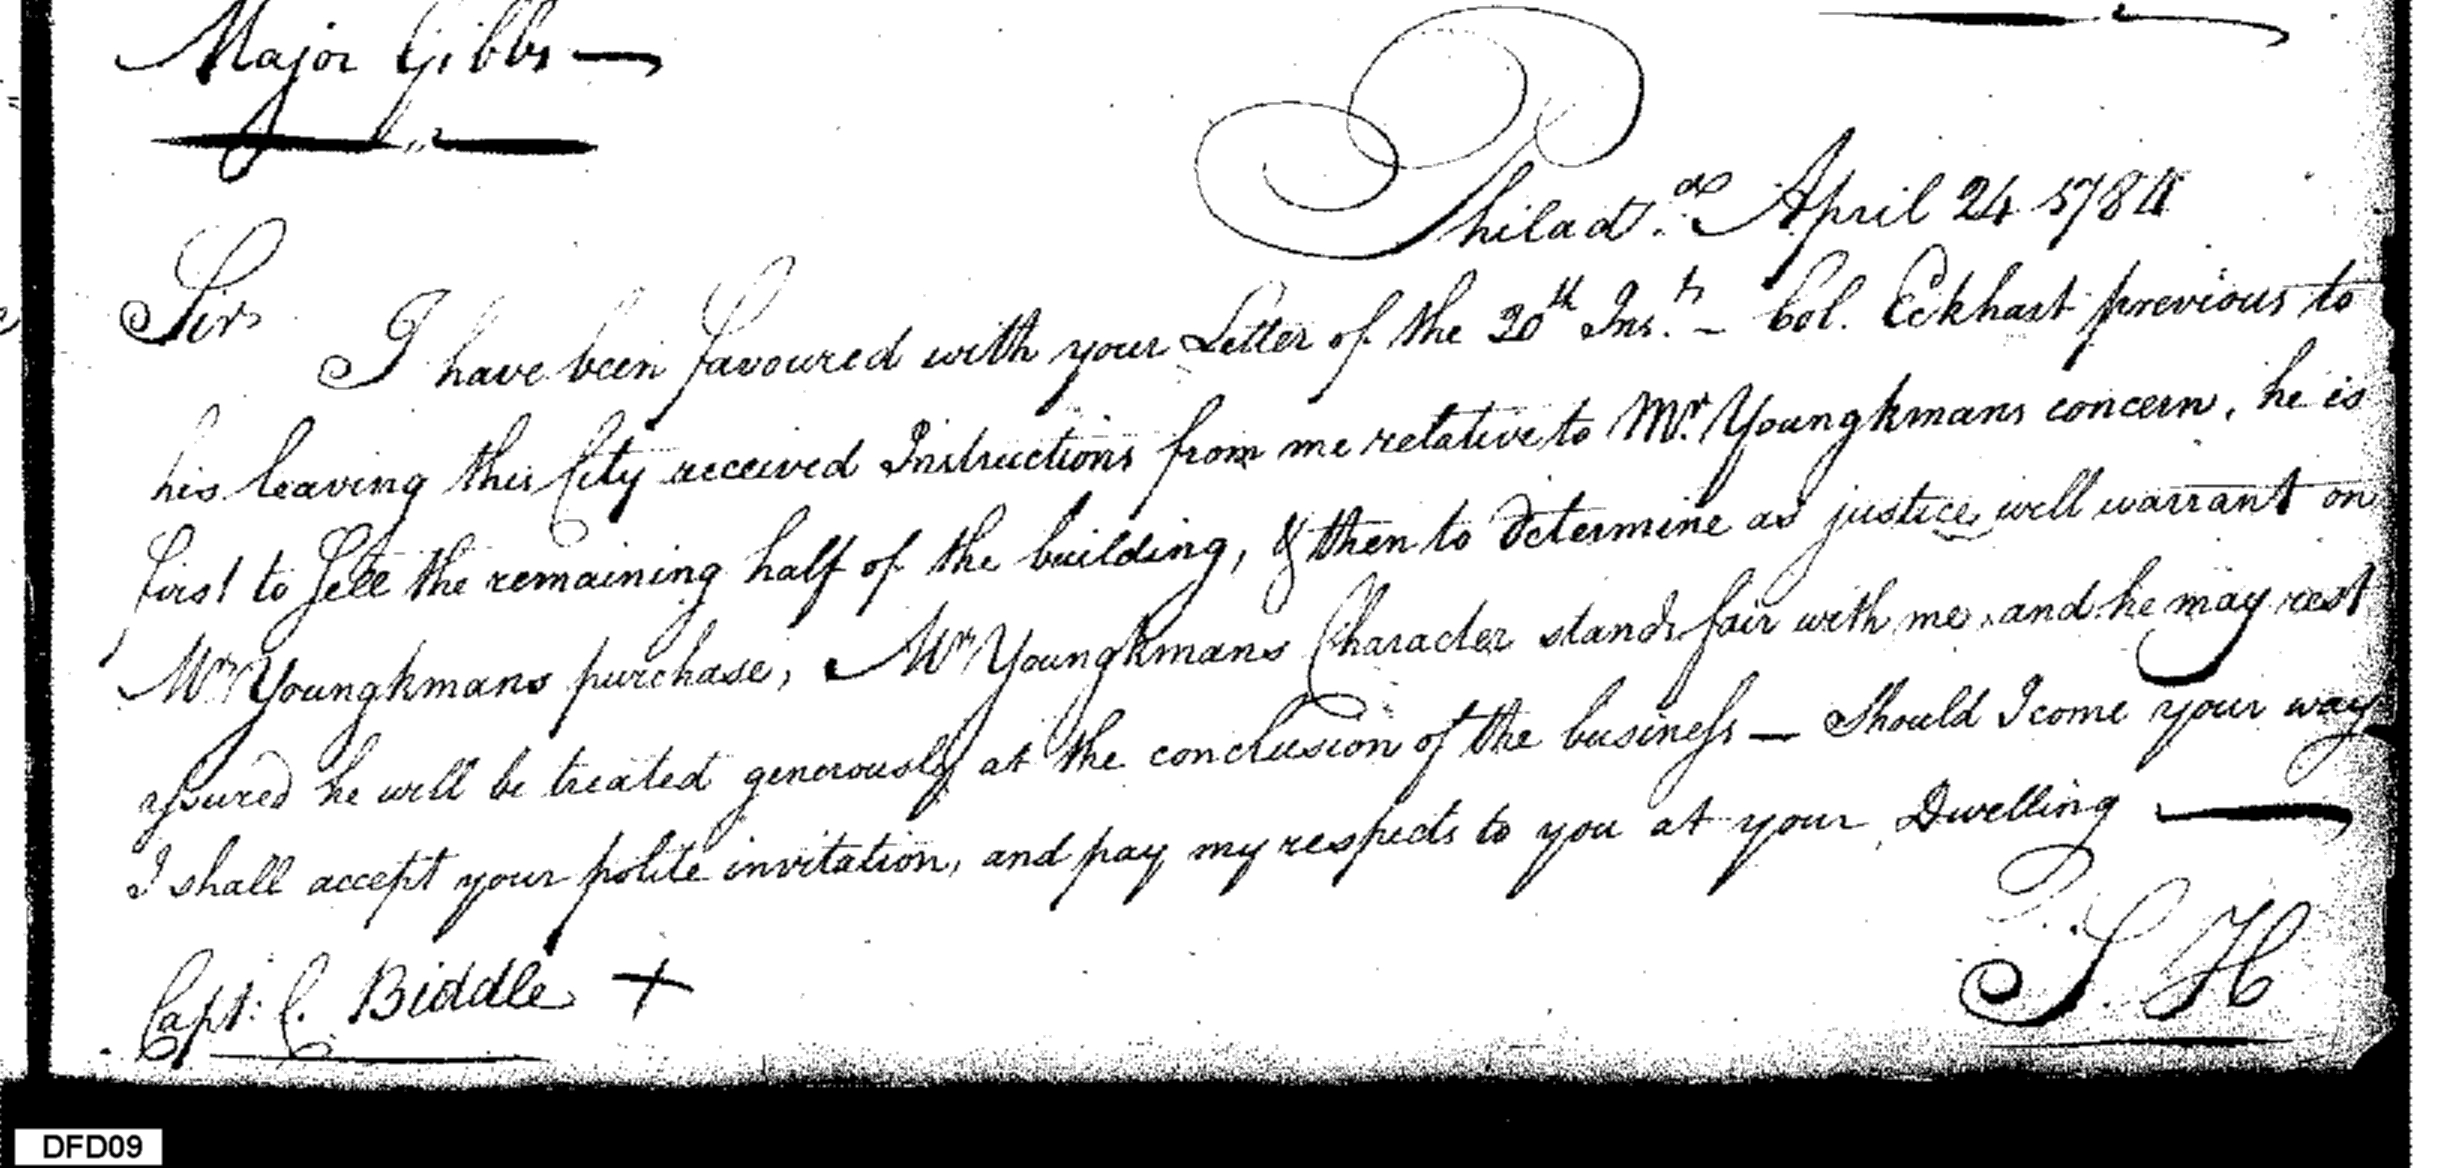 Major Gibbs —
Philad.ª April 24 1784
Sir
I have been favoured with your Letter of the 20th Ins.t – Col. Eckhart previous to
his leaving this City received Instructions from me relative to Mr. Youngkmans concern, he is
first to Sell the remaining half of the building, & then to determine as justice will warrant on
Mr Youngkmans purchase, Mr Youngkmans Character stands fair with me, and he may rest
assured he will be treated generously at the conclusion of the business — Should I come your way
I shall accept your polite invitation, and pay my respects to you at your Dwelling —
S. H
Capt. C. Biddle +
DFD09